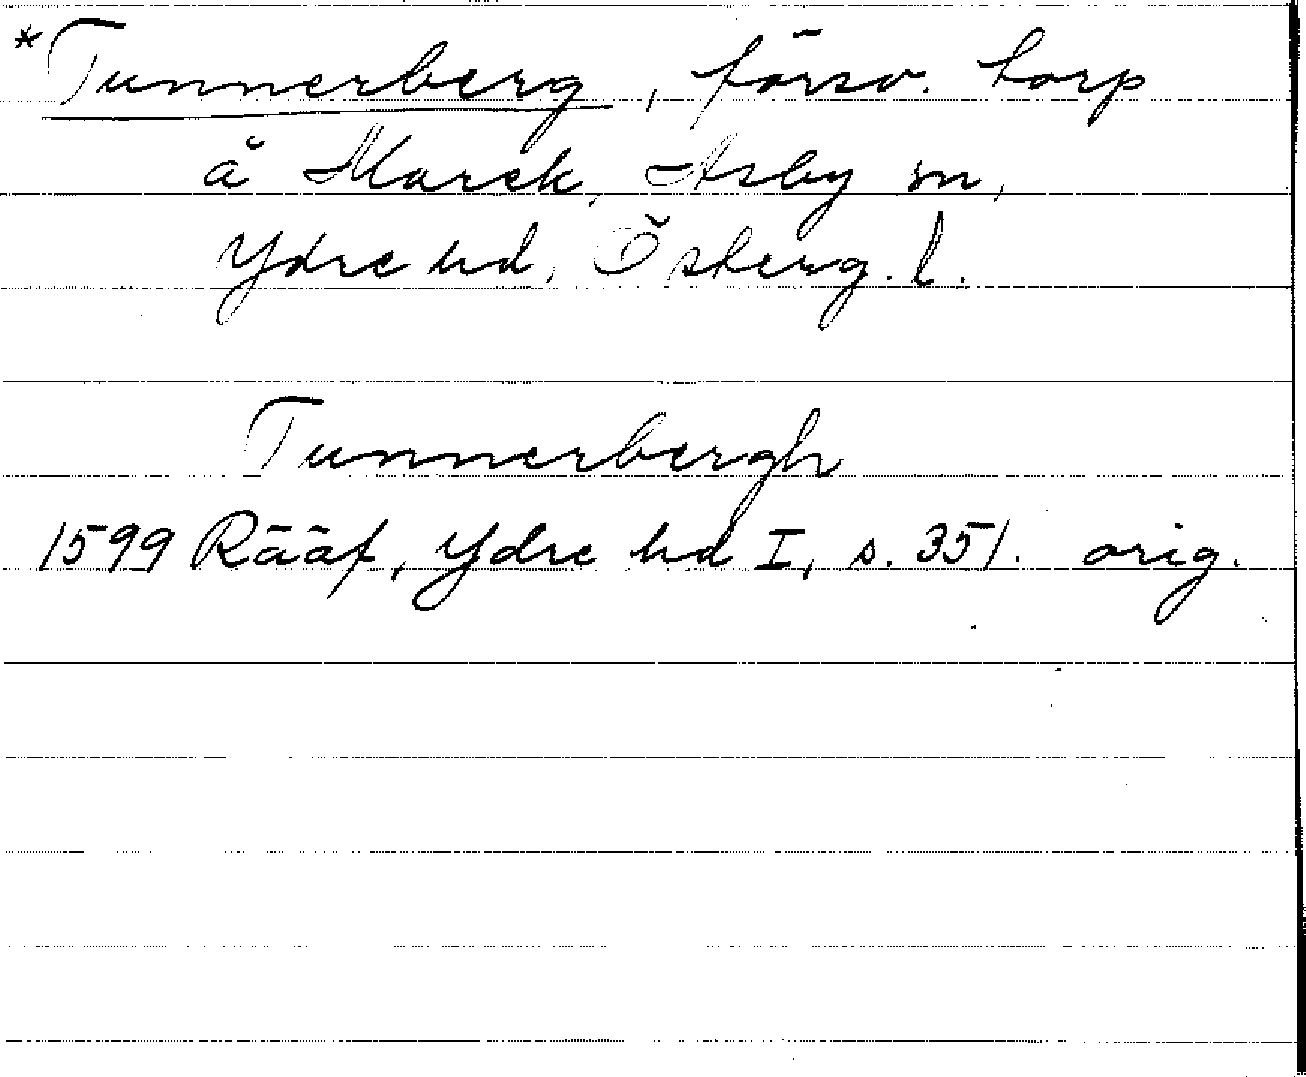 *Tunnerberg, försv. torp
å Marek, Asby sn,
Ydre hd, Östergu. l.
Tunnerbergh
1599 Rääf, Ydre hd I, s. 351. orig.